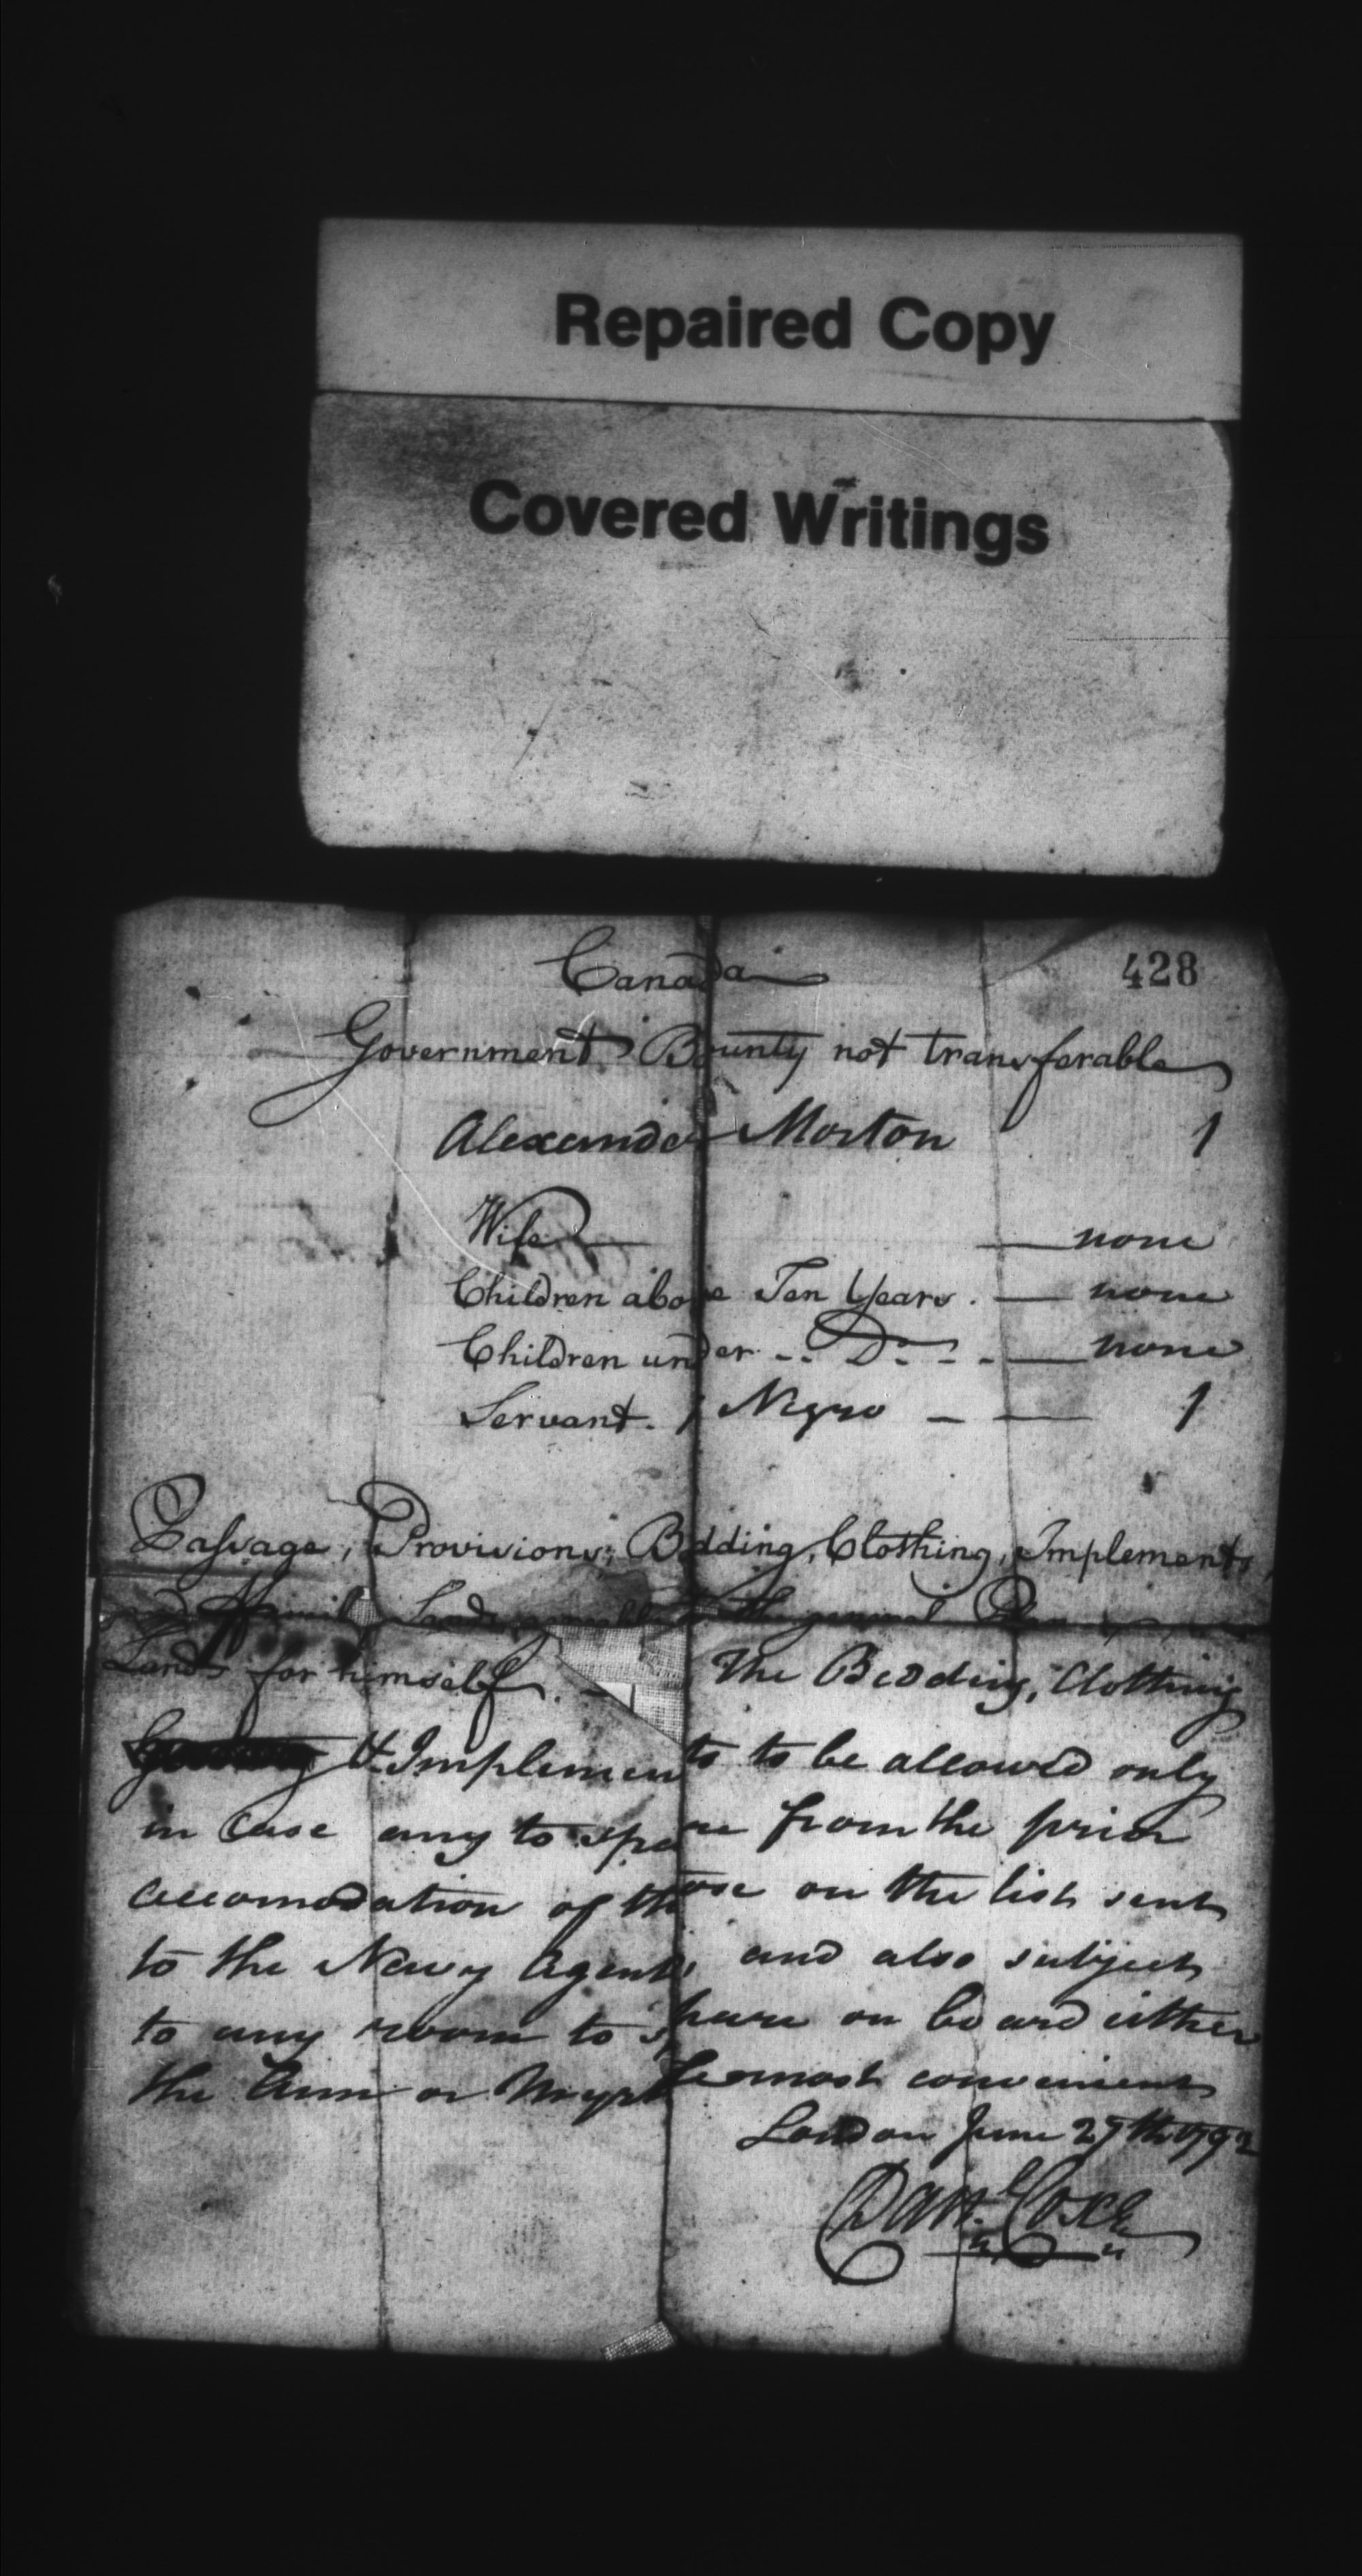 Repaired Copy
Covered Writings
428
Canada
Government Bounty not transferable
Alexander Morton 1
Wife — none
Children above Ten Years. — none
Children under .. Do. .. — none
Servant. 1 Negro — — 1
Passage, Provisions, Bedding, Clothing, Implements,
and Lands the general Plan
Lands for himself. — The Bedding, Clothing
& Implements to be allowed only
in Case any to spare from the prior
accomodation of those on the list sent
to the Navy Agent; and also subject
to any room to spare on board either
the Ann or Myrtle most convenient
London June 29th 1792
Danl. Coxe